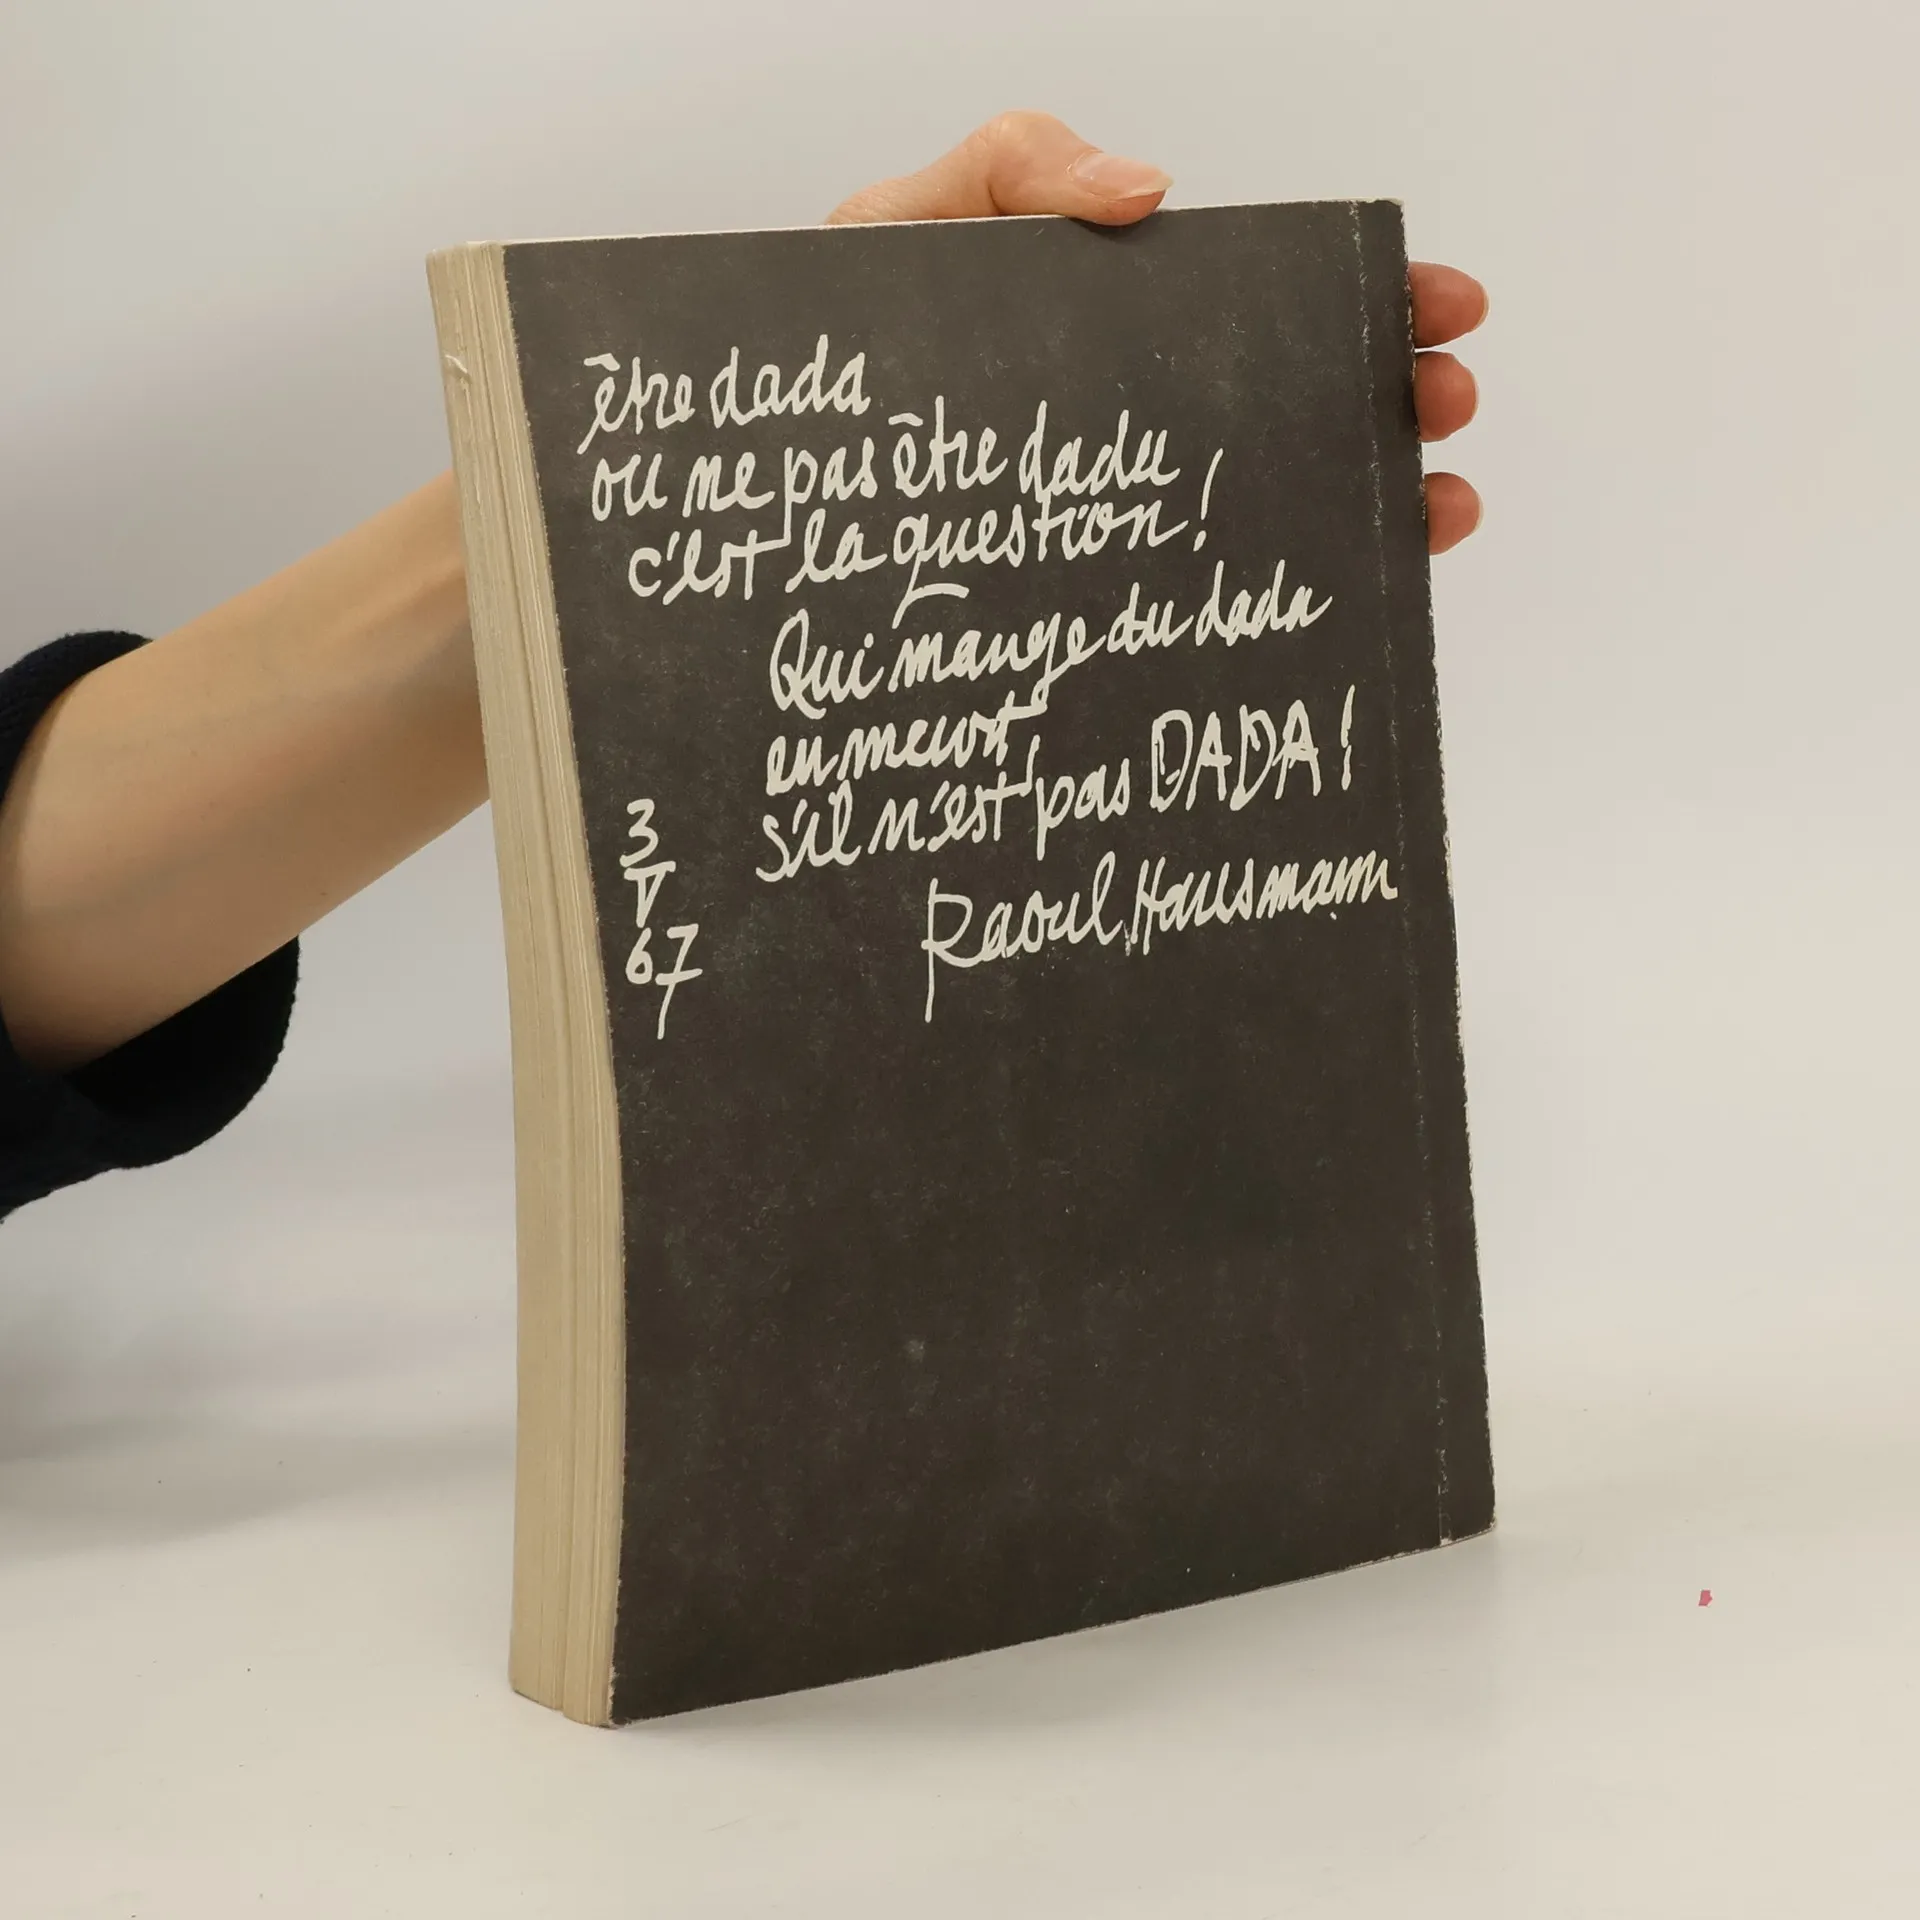 être dada
ou ne pas être dada
c'est la question!
Qui mange du dada
en meurt,
s'il n'est pas DADA!
3
V
67
Raoul Hausmann